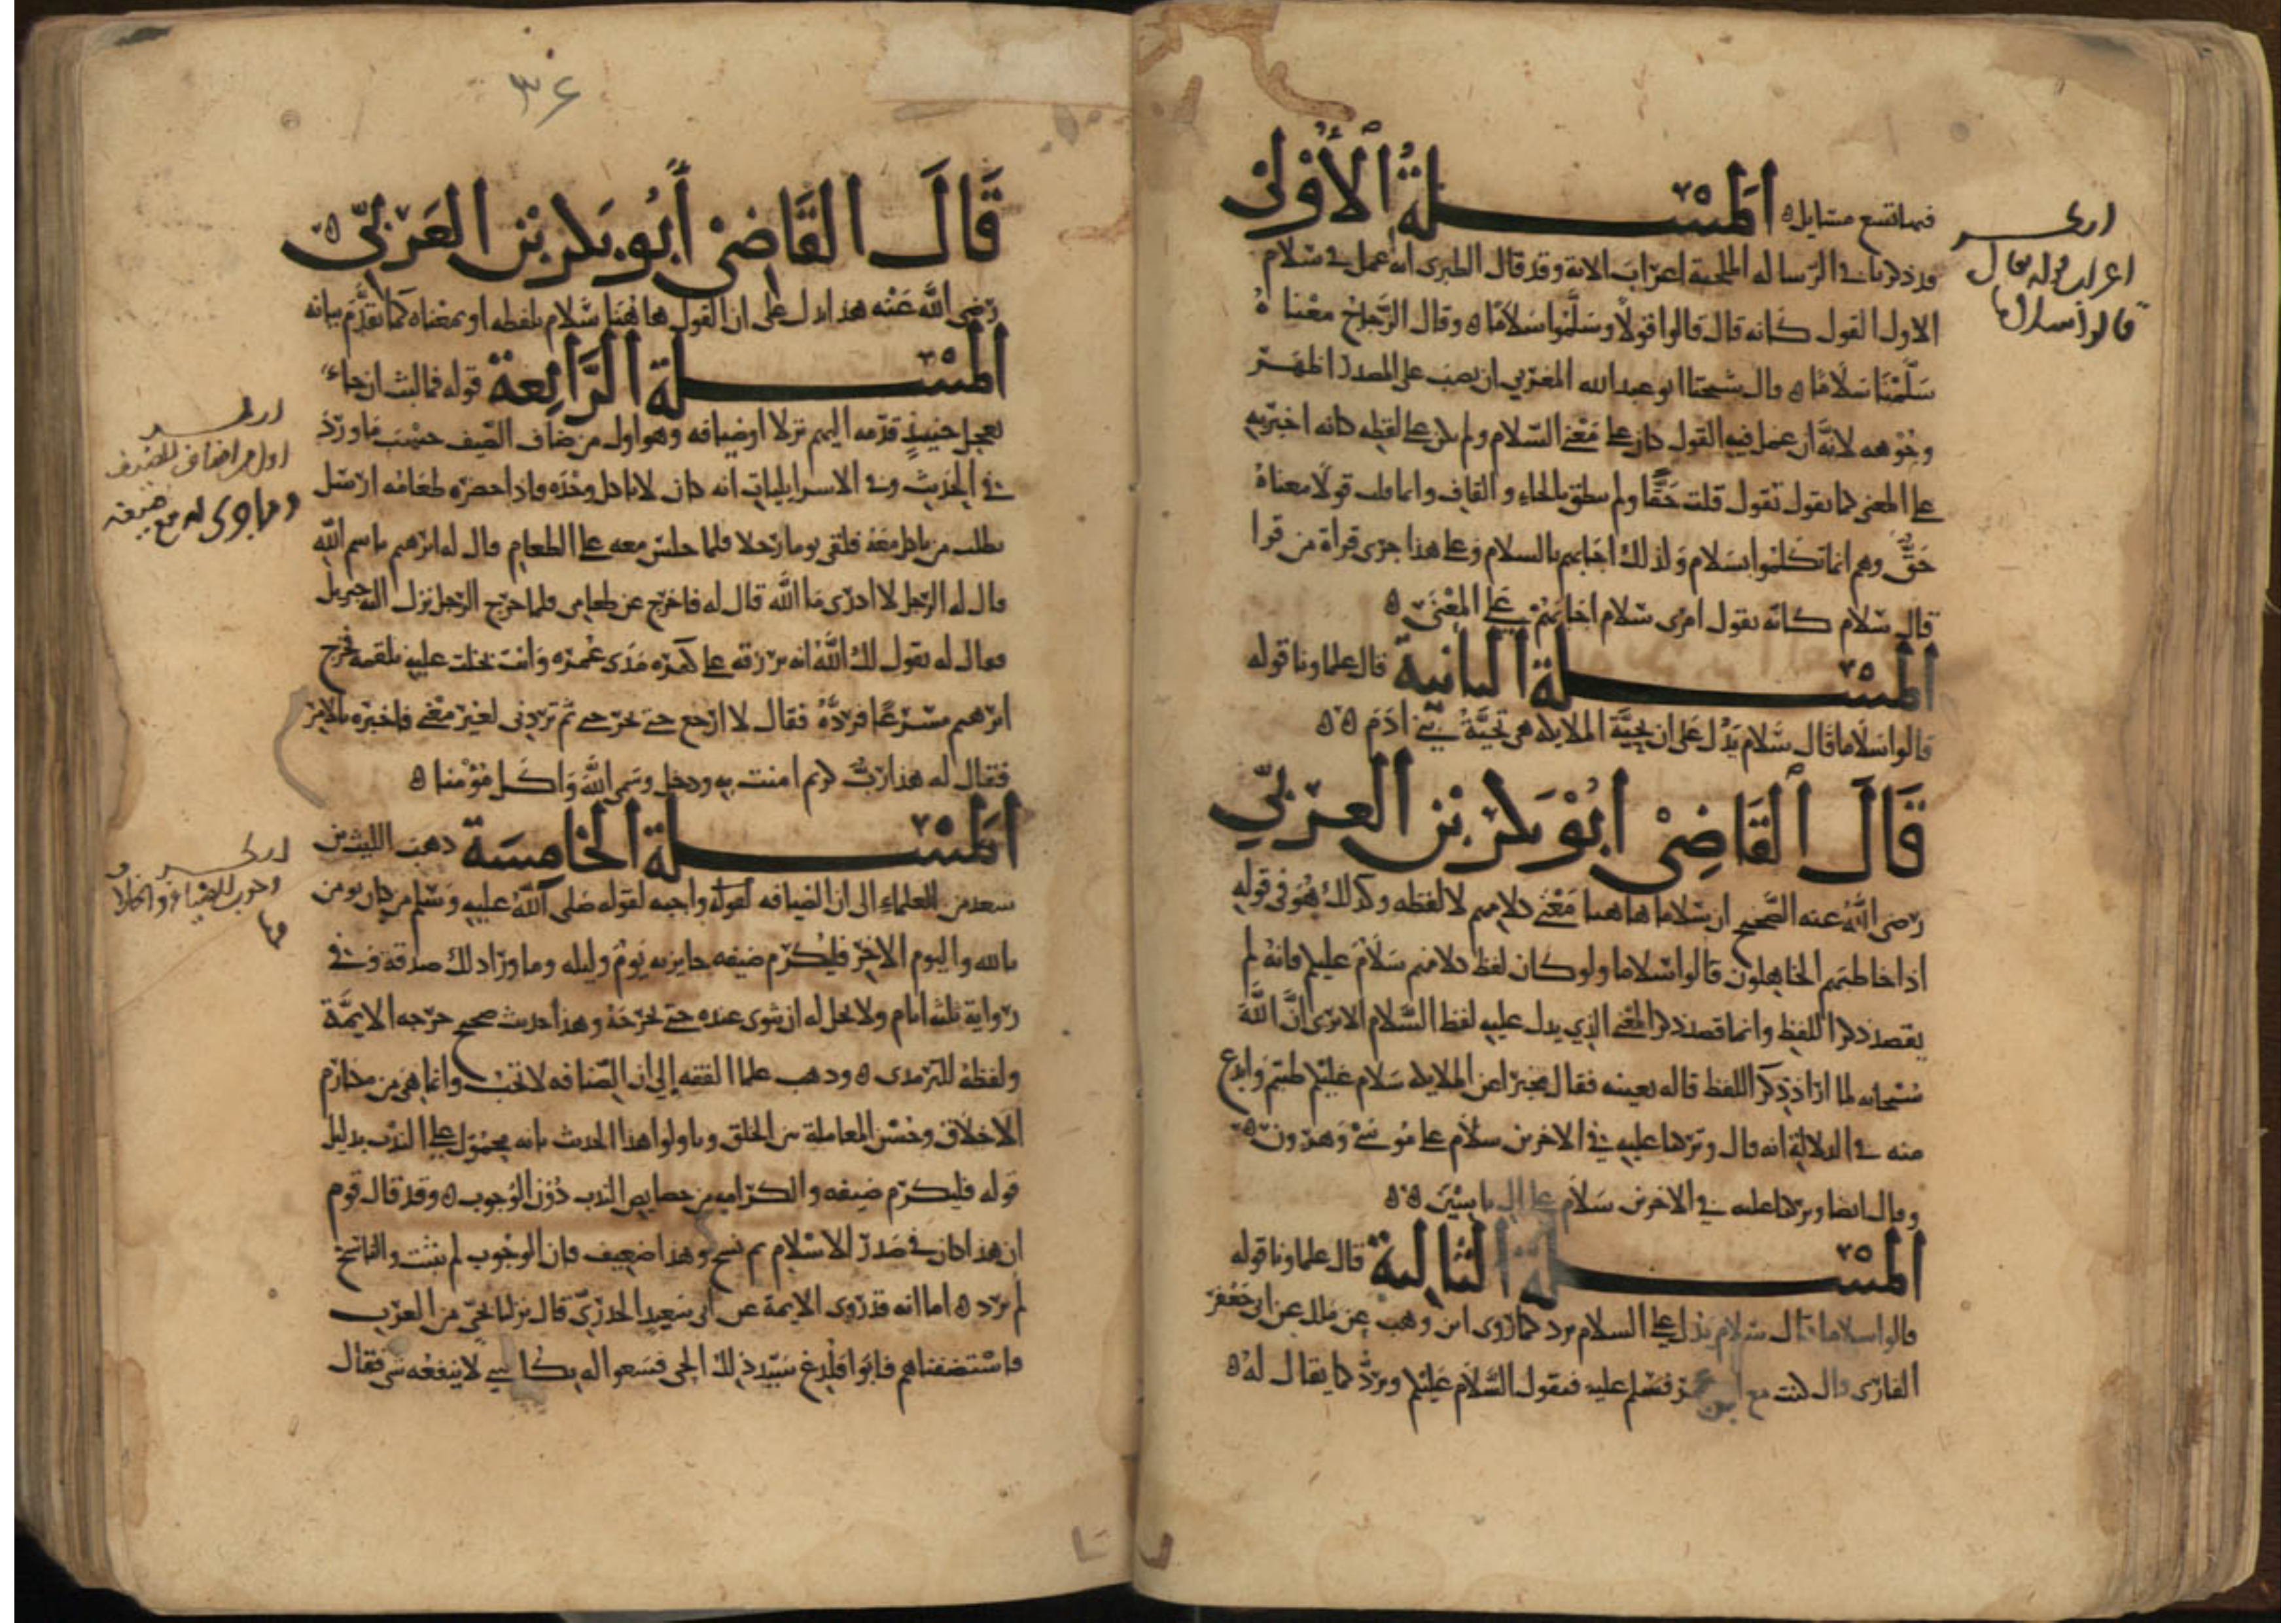 فيها تسع مسايل المسلة الأولى
قد ذكرنا في الرسالة الملجية اعراب الاية وقد قال الطبرى انه عمل في سلام
الاول القول كانه قال قالوا قولا وسلموا سلاما وقال الزجاج معناه
سلمنا سلاما قال شيخنا ابو عبد الله المغربي ان نصب على المصدر اظهر
وجوهه لانه ان عمل فيه القول كان على معنى السلام ولم يكن على لفظه كانه اخبر به
على المعنى كما يقول تقول قلت حقا ولم ينطق بالحاء والقاف وانما قلت قولا معناه
حق وهم انما تكلموا بسلام ولذلك اجابهم بالسلام وعلى هذا جرى قراة من قرا
قال سلام كانه يقول امرى سلام اجابهم على المعنى
المسلة الثانية قال علماونا قوله
قالوا سلاما قال سلام يدل على ان تحية الملايكة هي تحية بني ادم
قال القاضي ابو بكر بن العربي
رضى الله عنه الصحيح ان سلاما هاهنا معنى كلامهم لا لفظه وكذلك هو في قوله
اذا خاطبهم الجاهلون قالوا سلاما ولو كان لفظ كلامهم سلام عليكم فانه لم
يقصد ذكر اللفظ وانما قصد ذكر المعنى الذي يدل عليه لفظ السلام الا ترى ان الله
سبحانه لما اراد ذكر اللفظ قاله بعينه فقال مخبرا عن الملايكة سلام عليكم طبتم وابدع
منه في الدلالة انه قال وتركنا عليه في الاخرين سلام على موسى وهرون
وقال ايضا وتركنا عليه في الاخرين سلام على ال ياسين
المسلة الثالثة قال علماونا قوله
قالوا سلاما قال سلام يدل على السلام يرد كما روى ابن وهب عن ملك عن ابى جعفر
القارى قال كنت مع ابن عمر فسلم عليه فيقول السلام عليكم ويرد كما يقال له
اعراب قوله تعال
قالوا سلاما
٣٤
قال القاضي أبو بكر بن العربي
رضى الله عنه هذا يدل على ان القول هاهنا سلام بلفظه او بمعناه كما تقدم بيانه
المسلة الرابعة قوله فما لبث ان جاء
بعجل حنيذ قدمه اليهم نزلا اوضيافه وهو اول من ضاف الضيف حسب ما ورد
في الحديث وفي الاسرايليات انه كان لا ياكل وحده فاذا حضره طعامه ارسل
يطلب من ياكل معه فلقى يوما رجلا فلما جلس معه على الطعام قال له ابرهيم باسم الله
قال له الرجل لا ادرى ما الله قال له فاخرج عن طعامى فلما خرج الرجل نزل اليه جبريل
فقال له يقول لك الله انه يرزقه على كفره مدى عمره وانت بخلت عليه بلقمه فخرج
ابرهيم مسرعا فرده فقال لا ارجع حتى تخبرني لم تردني لغير معنى فاخبره بالامر
فقال له هذا رب كريم امنت به ودخل وسمى الله واكل مؤمنا
المسلة الخامسة ذهب الليث بن
سعد من العلماء الى ان الضيافه واجبه لقوله صلى الله عليه وسلم من كان يومن
بالله واليوم الاخر فليكرم ضيفه جايزته يوم وليله وما ورا ذلك صدقة وفي
رواية ثلثة ايام ولا يحل له ان يثوى عنده حتى يحرجه وهذا حديث صحيح خرجه الايمة
ولفظه للترمذى وذهب علما الفقه إلى ان الضيافه لا تجب وانما هي من مكارم
الاخلاق وحسن المعاملة بين الخلق وتاولوا هذا الحديث بانه محمول على الندب بدليل
قوله فليكرم ضيفه والكرامه من خصايص الندب دون الوجوب وقد قال قوم
ان هذا كان في صدر الاسلام ثم نسخ وهذا ضعيف فان الوجوب لم يثبت والناسخ
لم يرد اما انه قد روى الايمة عن ابى سعيد الخدرى قال نزلنا بحى من العرب
فاستضفناهم فابوا فلدغ سيد ذلك الحى فسعوا له بكل شي لا ينفعه شى فقال
اول من اضاف الضيف
وما جرى له مع ضيفه
وجوب الضيافة